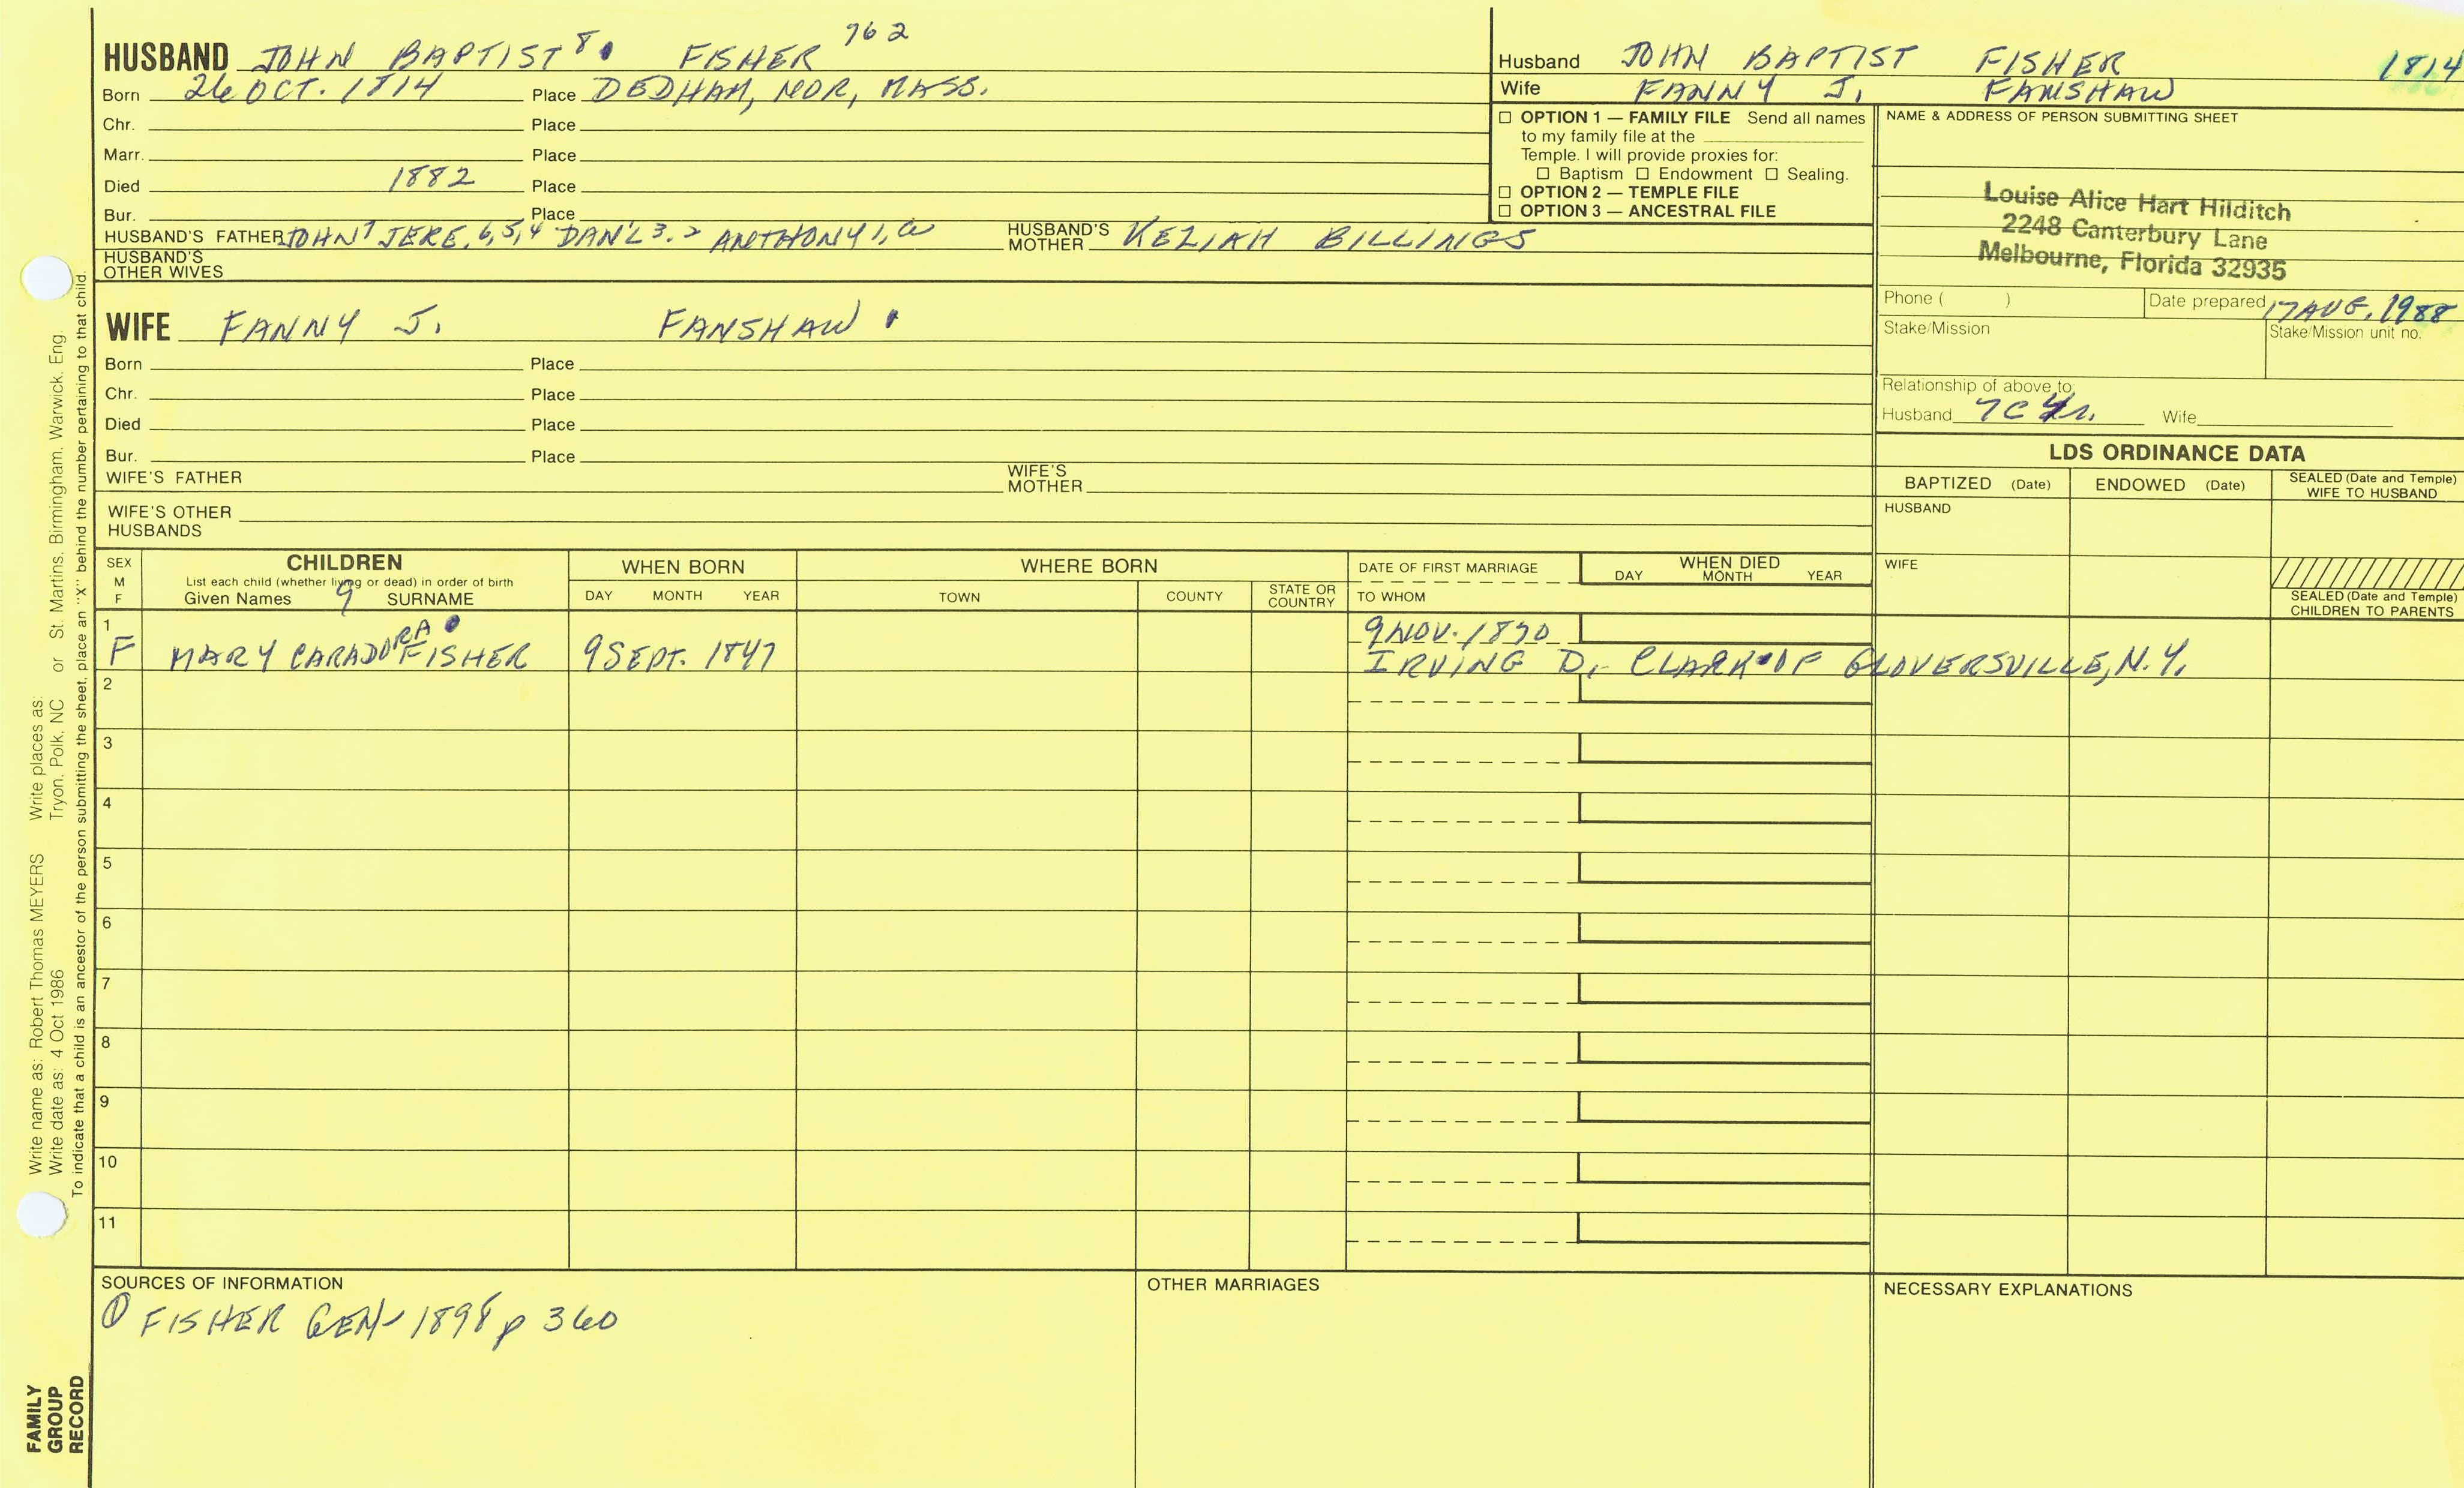 HUSBAND JOHN BAPTIST 8. FISHER 762
Born 26 OCT. 1814 Place DEDHAM, NOR, MASS.
Chr. Place
Marr. Place
Died 1882 Place
Bur. Place
HUSBAND'S FATHER JOHN 7 JERE. 6,5,4 DAN'L 3.2 ANTHONY 1, HUSBAND'S MOTHER KEZIAH BILLINGS
HUSBAND'S
OTHER WIVES
WIFE FANNY J. FANSHAW
Born Place
Chr. Place
Died Place
Bur. Place
WIFE'S FATHER WIFE'S MOTHER
WIFE'S OTHER
HUSBANDS
Husband JOHN BAPTIST FISHER 1814
Wife FANNY J. FANSHAW
☐ OPTION 1 — FAMILY FILE Send all names
to my family file at the
Temple. I will provide proxies for:
☐ Baptism ☐ Endowment ☐ Sealing.
☐ OPTION 2 — TEMPLE FILE
☐ OPTION 3 — ANCESTRAL FILE
NAME & ADDRESS OF PERSON SUBMITTING SHEET
Louise Alice Hart Hilditch
2248 Canterbury Lane
Melbourne, Florida 32935
Phone ( ) Date prepared 17 AUG. 1988
Stake/Mission Stake/Mission unit no.
Relationship of above to:
Husband 7C 4r. Wife
LDS ORDINANCE DATA
BAPTIZED (Date) ENDOWED (Date) SEALED (Date and Temple) WIFE TO HUSBAND
HUSBAND
WIFE
SEALED (Date and Temple) CHILDREN TO PARENTS
SEX M F CHILDREN WHEN BORN WHERE BORN DATE OF FIRST MARRIAGE WHEN DIED
List each child (whether living or dead) in order of birth DAY MONTH YEAR
Given Names 9 SURNAME DAY MONTH YEAR TOWN COUNTY STATE OR COUNTRY TO WHOM
1 F MARY CARADORA FISHER 9 SEPT. 1847 9 NOV. 1870
IRVING D. CLARK OF GLOVERSVILLE, N.Y.
2
3
4
5
6
7
8
9
10
11
SOURCES OF INFORMATION OTHER MARRIAGES NECESSARY EXPLANATIONS
① FISHER GEN 1898 p 360
Write name as: Robert Thomas MEYERS Write places as: St. Martins, Birmingham, Warwick, Eng
Write date as: 4 Oct 1986 Tryon, Polk, NC or
To indicate that a child is an ancestor of the person submitting the sheet, place an "X" behind the number pertaining to that child.
FAMILY
GROUP
RECORD